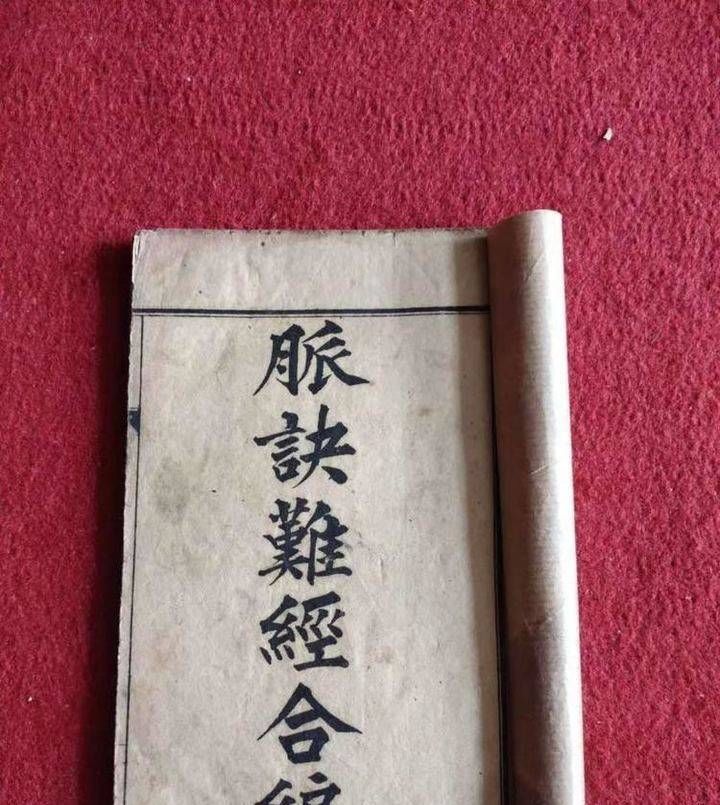 脈訣難經合編